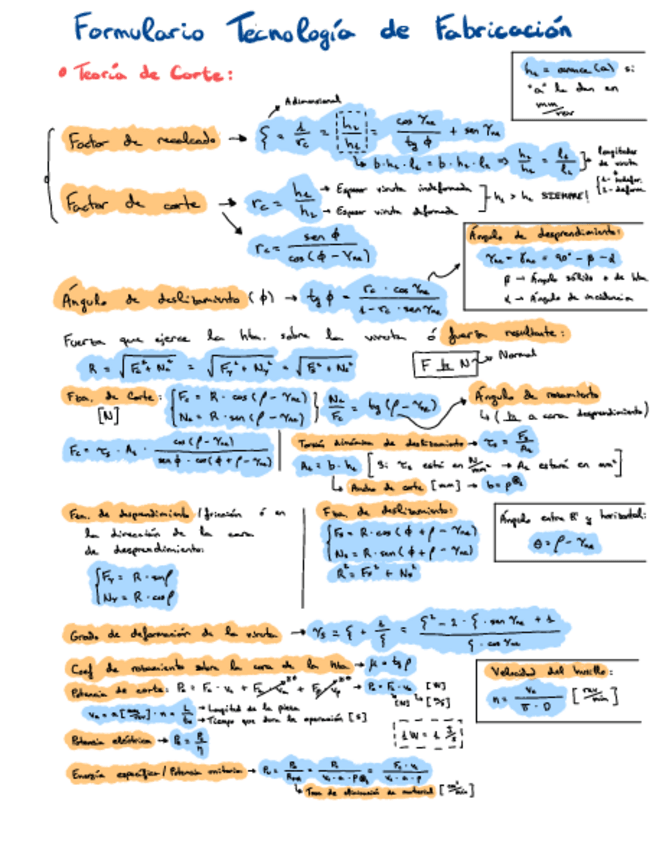 Formulario Tecnología de Fabricación
• Teoría de Corte:
h₁ = avance (a) si
"a" la dan en
mm/rev
Adimensional
Factor de recalcado → ξ = 1/rc = h₂/h₁ = cos γne / tg ϕ + sen γne
↳ b·h₁·l₁ = b·h₂·l₂ ⇒ h₂/h₁ = l₁/l₂
Longitudes
de viruta
1 - indefor.
2 - deform.
Factor de corte → rc = h₁/h₂ → Espesor viruta indeformada
→ Espesor viruta deformada
h₂ > h₁ SIEMPRE!
rc = sen ϕ / cos(ϕ - γne)
Ángulo de desprendimiento:
γne = 90° - β - α
β → Ángulo sólido o de hta
α → Ángulo de incidencia
Ángulo de deslizamiento (ϕ) → tg ϕ = rc · cos γne / 1 - rc · sen γne
Fuerza que ejerce la hta. sobre la viruta ó fuerza resultante:
R = √Fc² + Nc² = √Fγ² + Nγ² = √Fs² + Ns²
F ⊥ N → Normal
Fza. de Corte: { Fc = R · cos(ρ - γne)
[N] Nc = R · sen(ρ - γne) } Nc/Fc = tg(ρ - γne)
Ángulo de rozamiento
↳ (⊥ a cara desprendimiento)
Fc = τs · As · cos(ρ - γne) / sen ϕ · cos(ϕ + ρ - γne)
Tensión dinámica de deslizamiento → τs = Fs/As
As = b · h₁ [Si τs está en N/mm² → As estará en mm²]
↳ Ancho de corte [mm] → b = p
Fza. de desprendimiento (fricción ó en
la dirección de la cara
de desprendimiento:
{ Fγ = R · senρ
Nγ = R · cosρ
Fza. de deslizamiento:
{ Fs = R · cos(ϕ + ρ - γne)
Ns = R · sen(ϕ + ρ - γne)
R² = Fs² + Ns²
Ángulo entre R y horizontal:
θ = ρ - γne
Grado de deformación de la viruta → γs = ξ + 1/ξ = ξ² - 2 · ξ · sen γne + 1 / ξ · cos γne
Coef de rozamiento sobre la cara de la hta → μ = tg ρ
Potencia de corte: Pc = Fc · vc + → Pc = Fc · vc [W]
[N] [m/s]
→ Longitud de la pieza
→ Tiempo que dura la operación [s]
1W = 1 J/s
Velocidad del husillo:
n = vc / π · D [rev/min]
Potencia eléctrica → Pe = Pc/η
Energía específica / Potencia unitaria →
↳ Tasa de eliminación de material